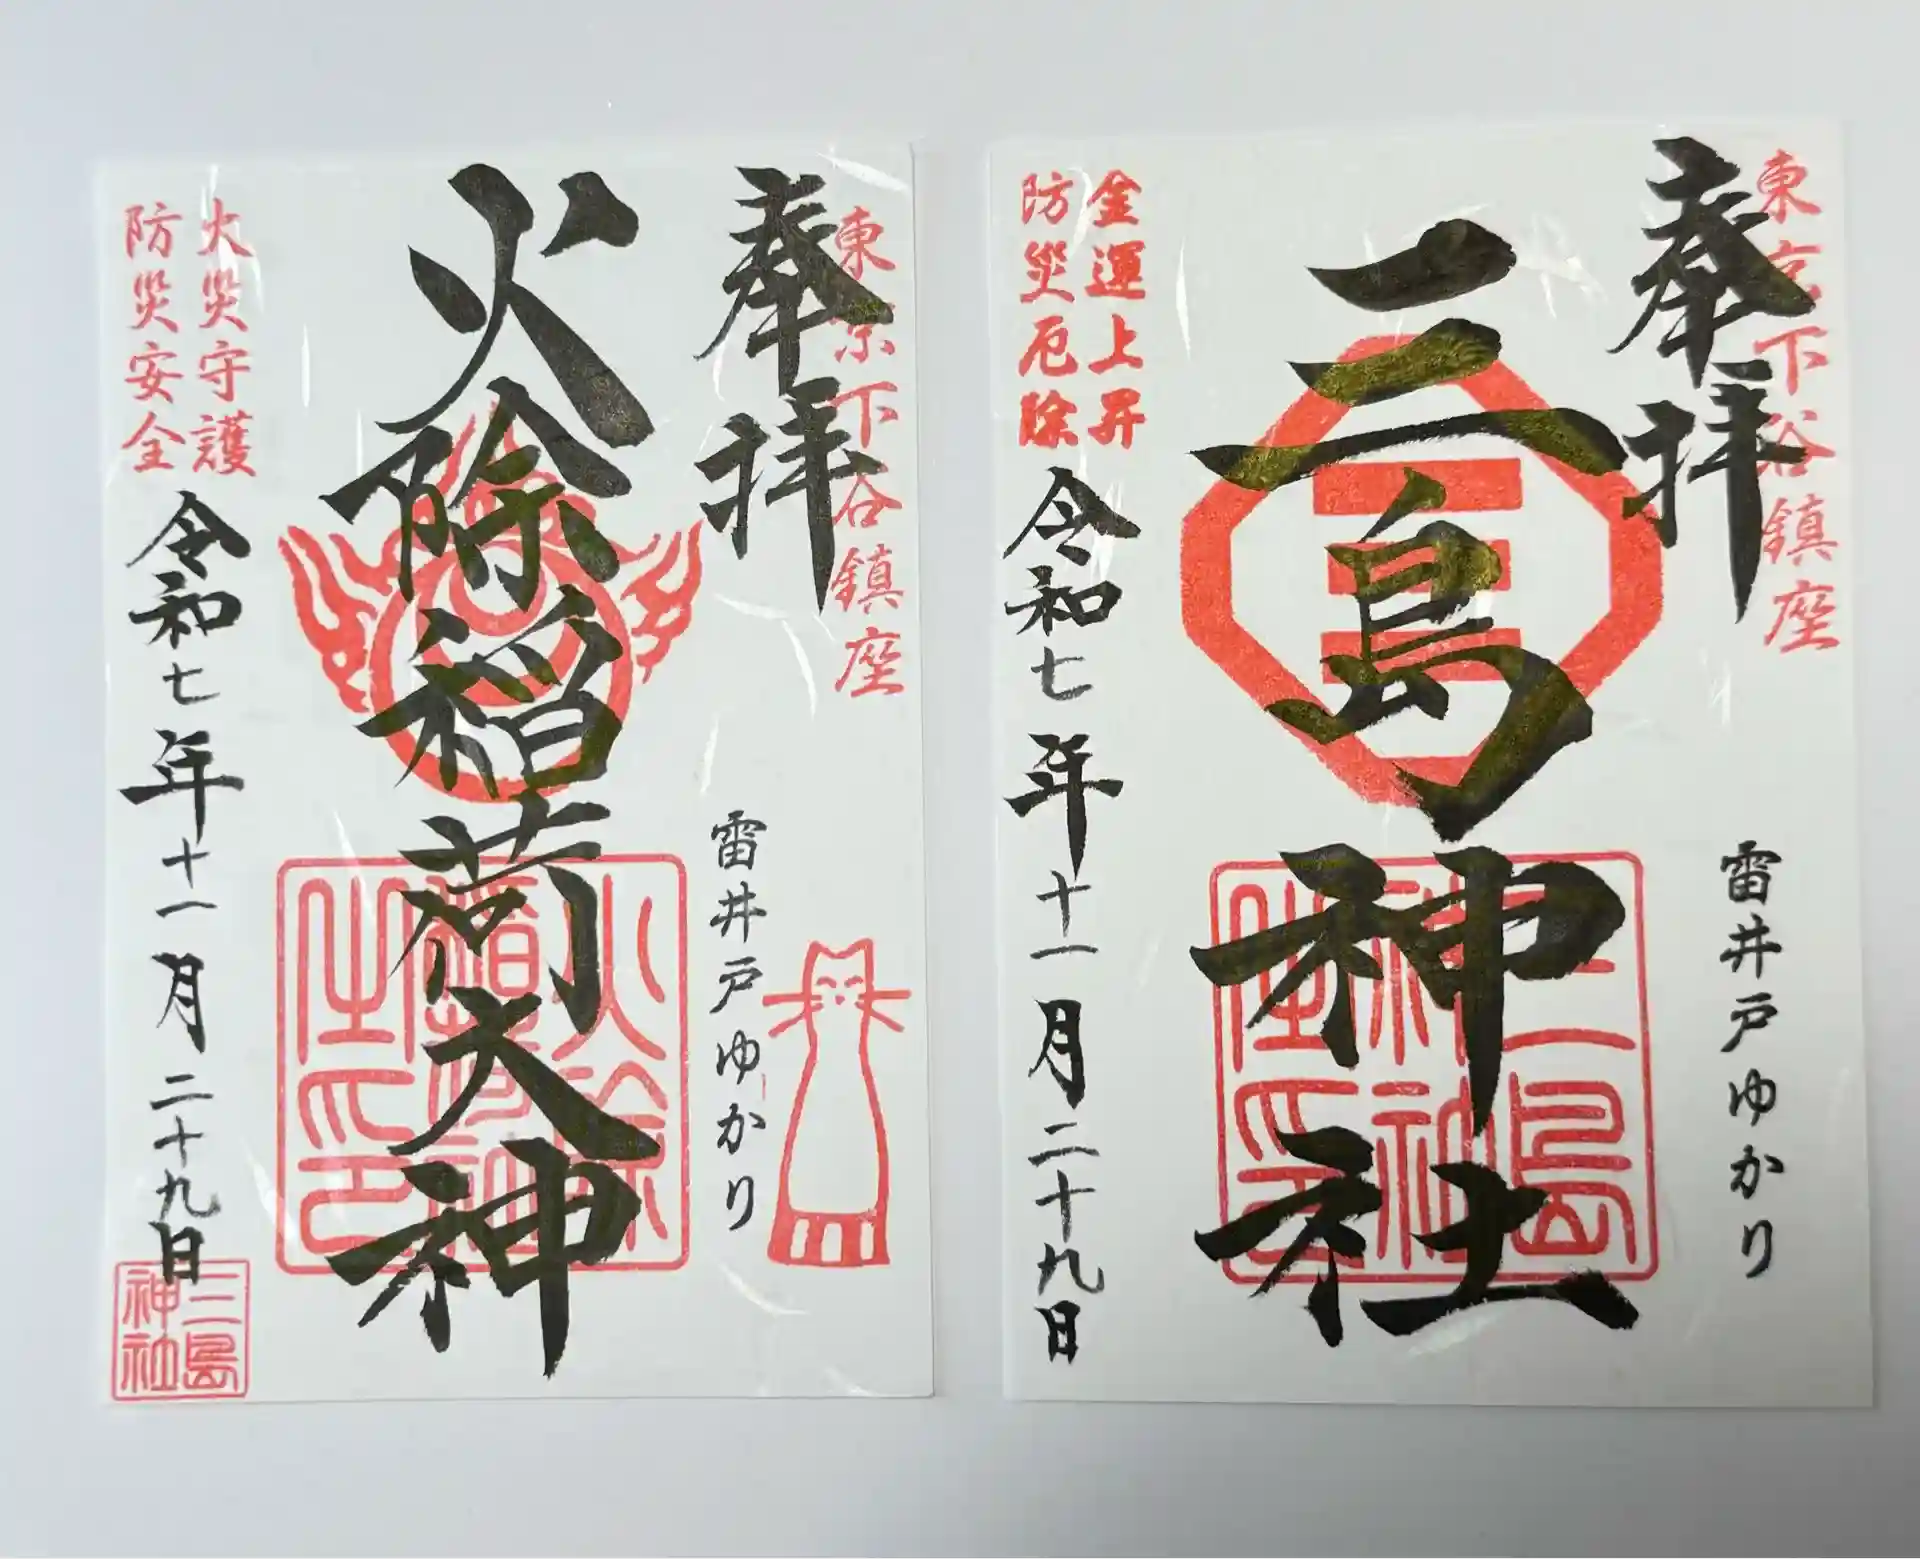 東京下谷鎮座
奉拝
雷井戸ゆかり
三島神社
三島神社之印
金運上昇
防災厄除
令和七年十一月二十九日
東京下谷鎮座
奉拝
雷井戸ゆかり
火除稲荷大神
火災守護
防災安全
令和七年十一月二十九日
三島神社